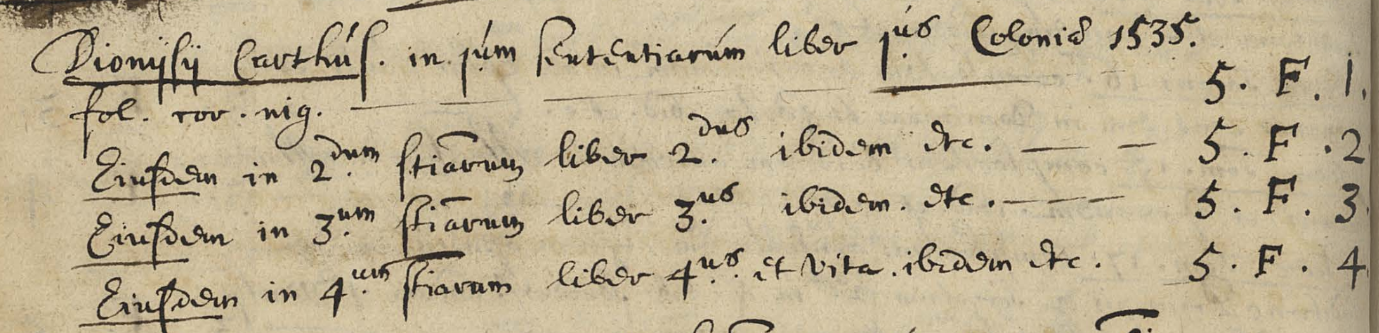 Dionijsij Carthus. in 1um sententiarum liber 1us Coloniæ 1535.
fol. cor. nig. 5. F. 1.
Eiusdem in 2.dum stiārum liber 2.dus ibidem etc. 5. F. 2
Eiusdem in 3.um stiārum liber 3.us ibidem. etc. 5. F. 3
Eiusdem in 4.um stiarum liber 4.us et vita. ibidem etc. 5. F. 4